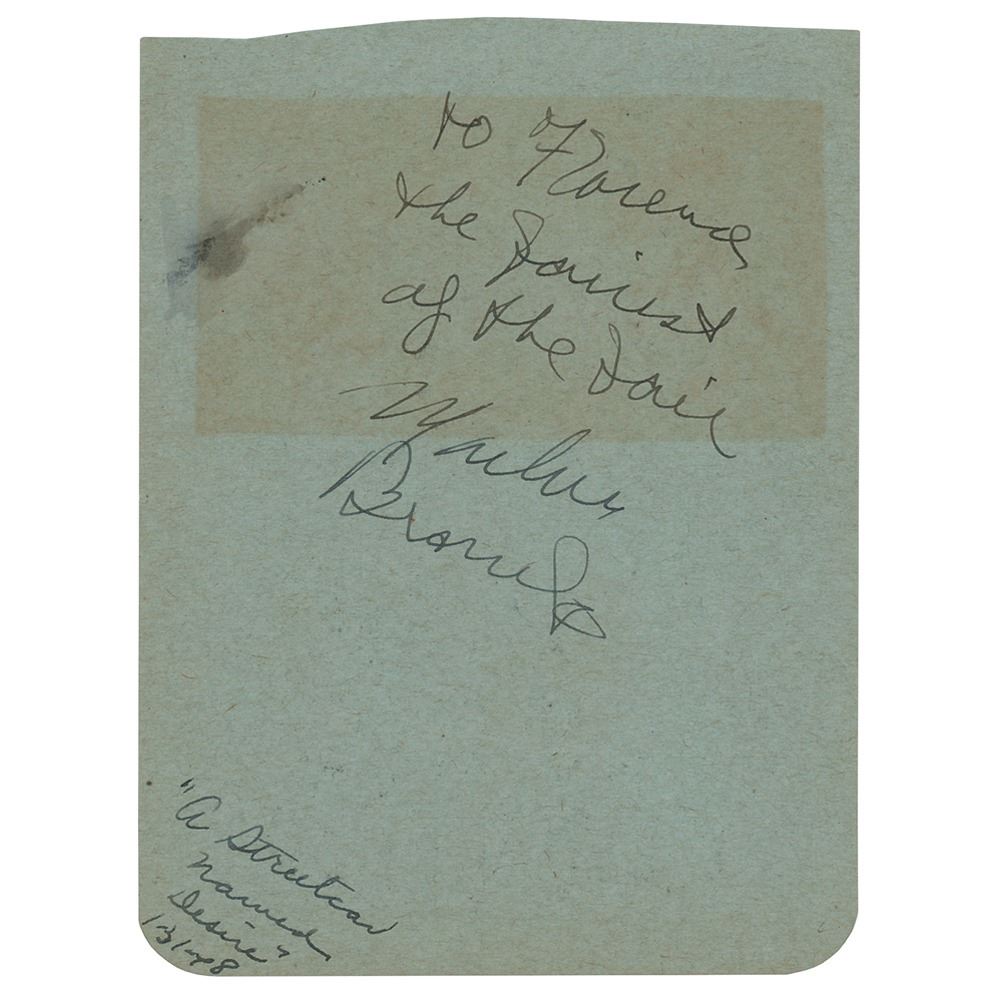 to Florence
the fairest
of the fair
Marlon
Brando
"A Streetcar
named
Desire"
1/3/48